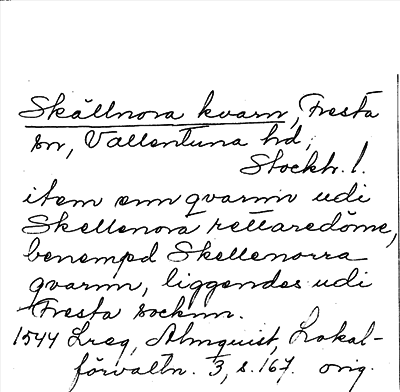 Skällnora kvarn, Fresta
sn, Vallentuna hd,
Stockh. l.
item enn qvarnn udi
Skellenora rettaredöme,
benempd Skellenorra
qvarnn, liggendes udi
Fresta socknn.
1544 Lreg, Almquist, Lokal-
förvaltn. 3, s. 167. orig.